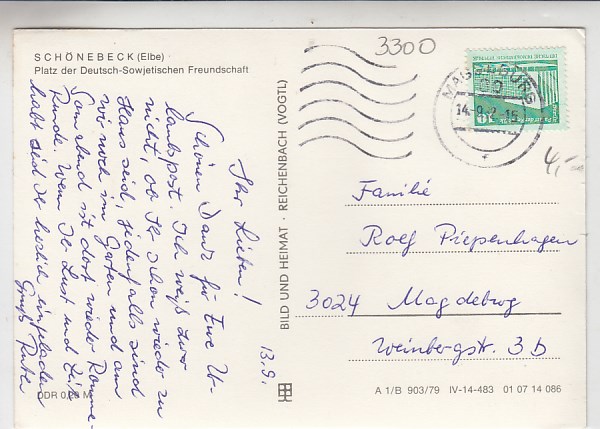 3300
SCHÖNEBECK (Elbe)
Platz der Deutsch-Sowjetischen Freundschaft
13.9.
Ihr Lieben!
Schönen Dank für Eure Ur-
laubspost. Ich weiß zwar
nicht, ob Ihr schon wieder zu
Haus seid, jedenfalls sind
wir noch im Garten und am
Sonnabend ist dort wieder Rommé-
Runde. Wenn Ihr Lust und Zeit
habt seid Ihr herzlich eingeladen
Gruß
DDR 0,20 M
BILD UND HEIMAT · REICHENBACH (VOGTL)
MAGDEBURG
14.-9.
Familie
Rolf Piepenhagen
3024 Magdeburg
Weinbergstr. 3b
A 1/B 903/79 IV-14-483 01 07 14 086
10
4,-